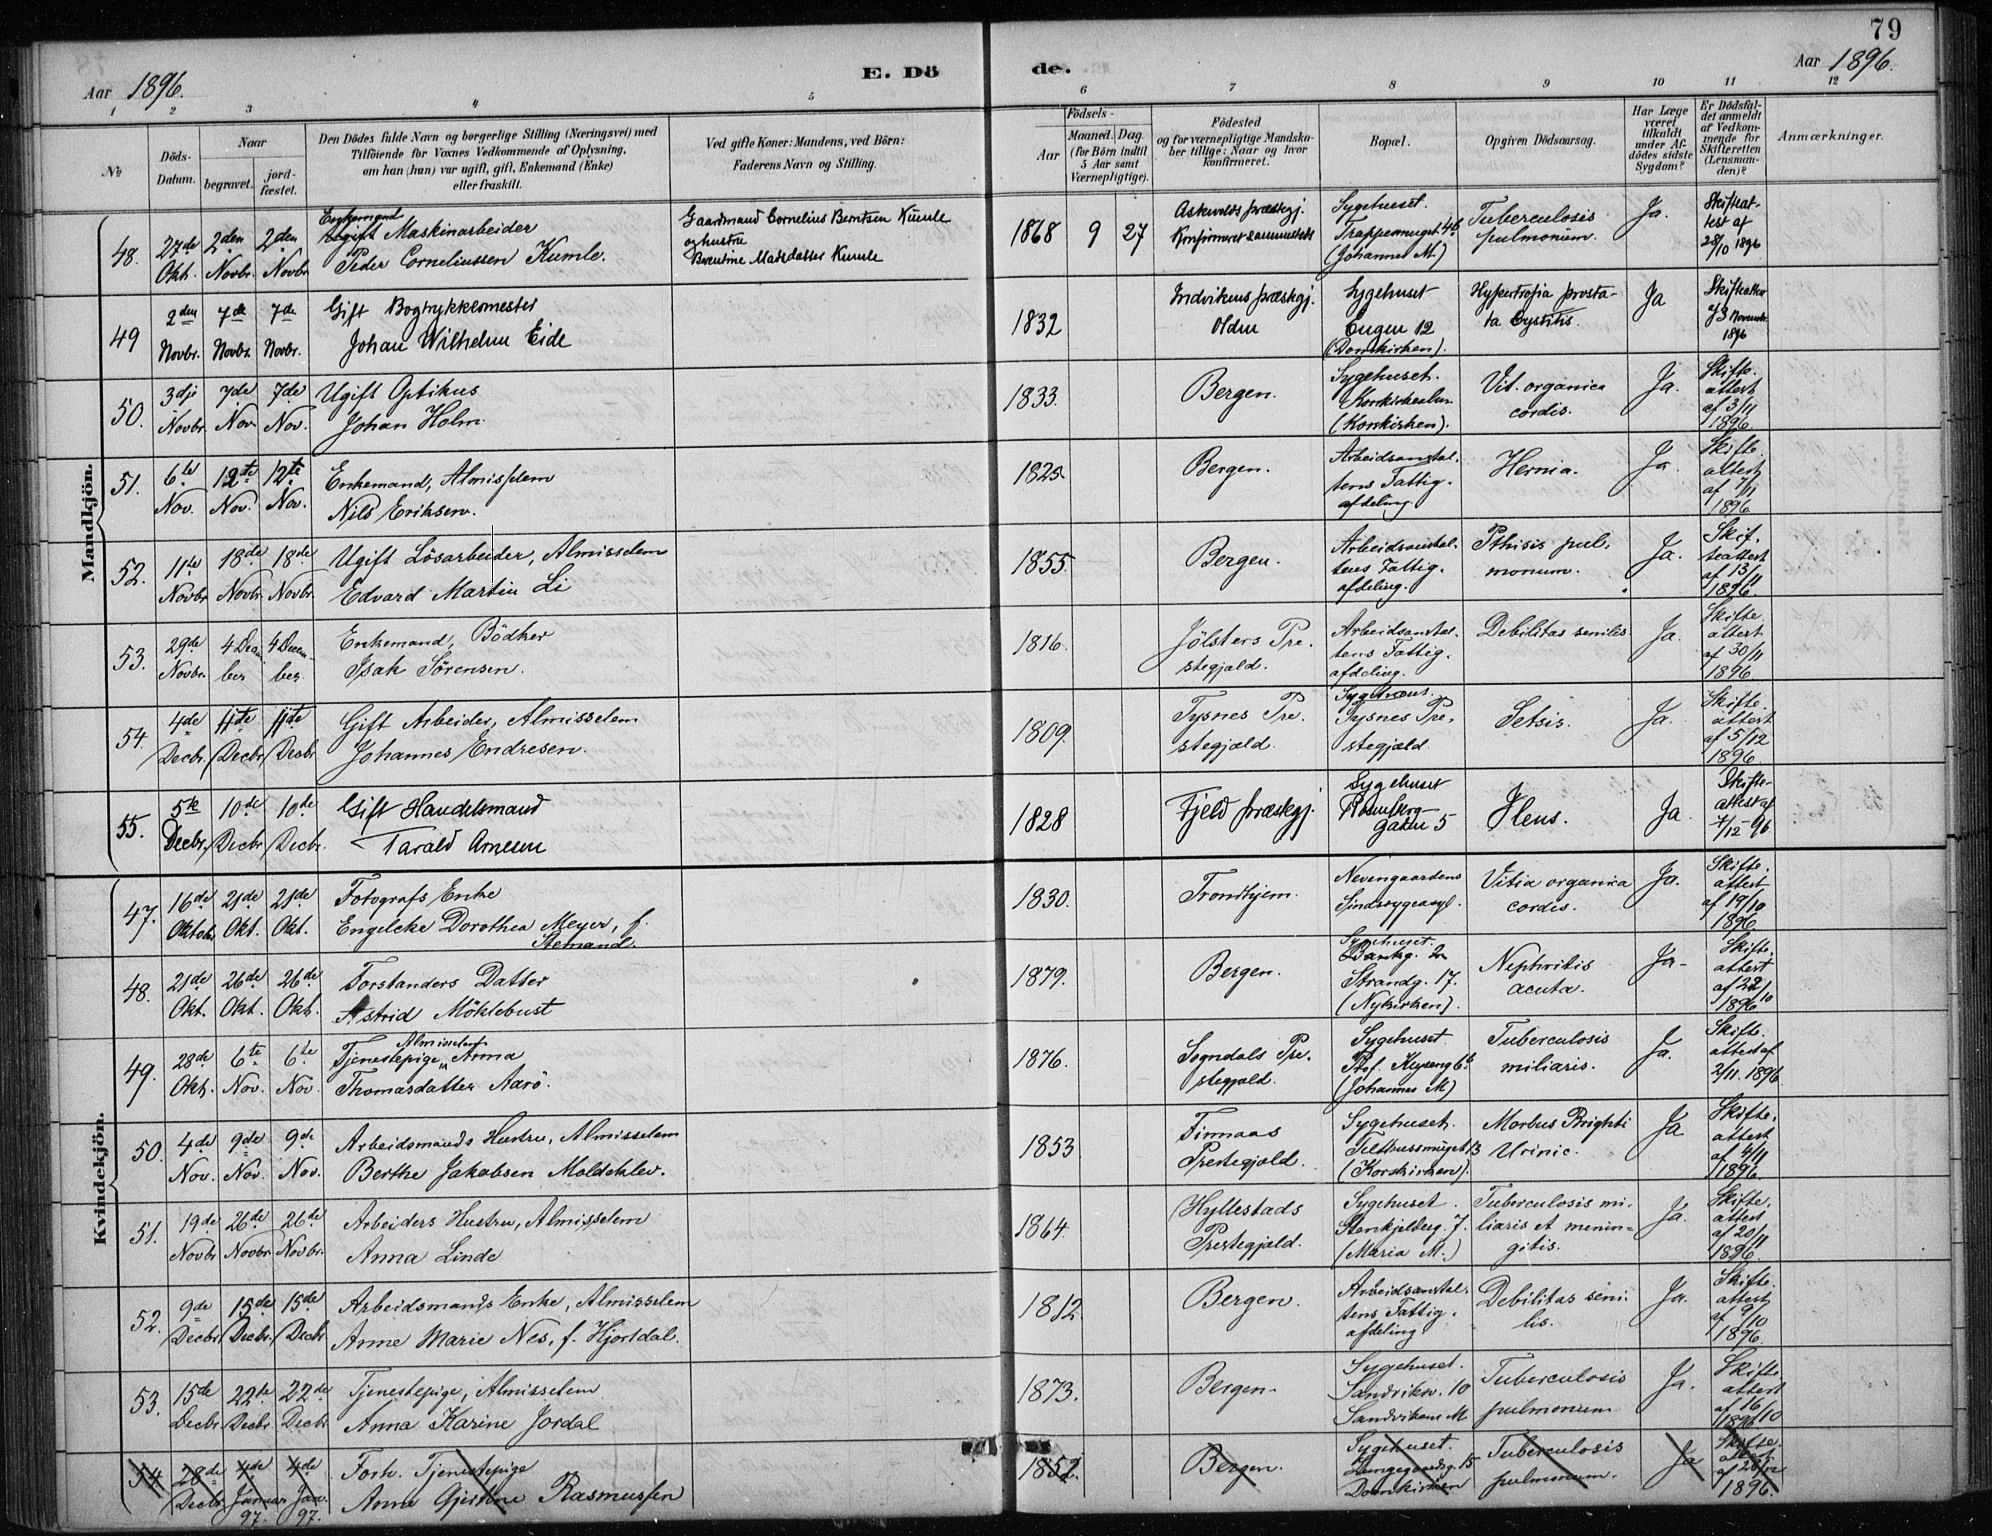 79
Aar 1896.
E. Dö
de.
Aar 1896.
1 2 3 4 5 6 7 8 9 10 11 12
No
Döds-
Datum.
Naar
begravet.
jord-
fæstet.
Den Dödes fulde Navn og borgerlige Stilling (Næringsvei) med
Tilföiende for Voxnes Vedkommende af Oplysning,
om han (hun) var ugift, gift, Enkemand (Enke)
eller fraskilt.
Ved gifte Koner: Mandens, ved Börn:
Faderens Navn og Stilling.
Födsels-
Aar
Maaned. Dag.
(for Börn indtil
5 Aar samt
Værnepligtige).
Födested
og for værnepligtige Mandska-
ber tillige: Naar og hvor
konfirmeret.
Bopæl.
Opgiven Dödsaarsag.
Har Læge
været
tilkaldt
under Af-
dödes sidste
Sygdom?
Er Dödsfal-
det anmeldt
af Vedkom-
mende for
Skifteretten
(Lensman-
den)?
Anmærkninger.
Mandkjön.
48. 27de Okt. 2den Novbr. 2den Novbr.
Enkemand
Ugift Maskinarbeider
Peder Corneliussen Kumle.
Gaardmand Cornelius Berntsen Kumle
og hustru
Berentine Madsdatter Kumle
1868 9 27
Askvolds præstegj.
Konfirmeret sammesteds
Sygehuset.
Trappesmuget 4b
(Johannes M)
Tuberculosis
pulmonum.
Ja.
Skifteat-
test af
28/10 1896
49 2den Novbr. 7de Novbr. 7de Novbr.
Gift Bogtrykkermester
Johan Wilhelm Eide
1832
Indvikens præstegj.
Olden
Sygehuset
Engen 12
(Domkirken).
Hypertrofia prosta-
ta Cystitis.
Ja
Skifteattest
af 3 November
1896
50. 3dje Novbr. 7de Nov 7de Nov.
Ugift Optikus
Johan Holm.
1833.
Bergen.
Sygehuset.
Korskirkealm
(Korskirken).
Vit. organica
cordis.
Ja.
Skifte.
attest
af 3/11
1896.
51. 6te Nov. 12te Nov. 12te Nov.
Enkemand, Almisselem
Nils Eriksen.
1825.
Bergen.
Arbeidsanstal.
tens Fattig.
afdeling.
Hernia.
Ja.
Skifte
attest
af 7/11
1896
52. 11te Novbr 18de Novbr. 18de Novbr.
Ugift Lösarbeider, Almisselem
Edvard Martin Li
1855.
Bergen.
Arbeidsanstal.
tens Fattig.
afdeling.
Pthisis pul.
monum.
Ja.
Skif.
teattest
af 13/11
1896.
53. 29de Novbr. 4 Decem ber 4 Decem- ber.
Enkemand, Bödker
Isak Sörensen.
1816.
Jölsters Pre.
stegjæld.
Arbeidsanstal.
tens Fattig.
afdeling.
Debilitas senilis
Ja.
Skifte.
attest
af 30/11
1896
54. 4de Decbr. 11te Decbr. 11te Decbr
Gift Arbeider, Almisselem
Johannes Endresen.
1809.
Tysnes Pre.
stegjæld.
Sygehuset.
Tysnes Pre.
stegjæld.
Setsis.
Ja.
Skifte.
attest
af 5/12
1896
55. 5te Decbr. 10de Decbr 10de Decbr.
Gift Handelsmand
Tarald Arnesen
1828
Fjeld præstegj.
Sygehuset
Rosenberg-
gaden 5
Ileus.
Ja
Skifte-
attest af
7/12-96
Kvindekjön.
47. 16de Oktober 21de Okt. 21de Okt.
Fotografs Enke
Engelcke Dorothea Meyer, f.
Stemand.
1830.
Trondhjem.
Nevengaardens
Sindssygeasyl.
Vitia organica
cordis.
Ja.
Skifte.
attest
af 19/10
1896
48. 21de Okt. 26de Okt. 26de Okt.
Forstanders Datter
Astrid Möklebust
1879.
Bergen.
Sygehuset.
Bankg. 2a
Strandg. 17.
(Nykirken).
Nephritis
acuta.
Ja-
Skifte.
attest
af 22/10
1896
49. 28de Okt. 6te Nov. 6te Nov.
Almisselem
Tjenestepige, Anna
Thomasdatter Aarö.
1876.
Sogndals Pre.
stegjæld.
Sygehuset.
Prof. Keyserg 6b
(Johannes M)
Tuberculosis
miliaris.
Ja.
Skifte.
attest af
2/11. 1896
50. 4de Nov. 9de Nov. 9de Nov.
Arbeidsmands Hustru, Almisselem
Berthe Jakobsen Moldeklev.
1853
Finnaas
Prestegjæld.
Sygehuset.
Telthussmuget 13
(Korskirken).
Morbus Brighti
Urinic.
Ja
Skifte.
attest
af 4/11
1896
51. 19de Novbr 26de Novbr. 26de Novbr.
Arbeiders Hustru, Almisselem
Anna Linde
1864.
Hyllestads
Prestegjæld.
Sygehuset.
Stenkjelberg. 7.
(Maria M.)
Tuberculosis mi-
liaris et menin-
gitis.
Ja.
Skifte.
attest
af 20/11
1896
52. 9de Decbr 15de Decbr. 15de Decbr
Arbeidsmands Enke, Almisselem
Anne Marie Nes, f. Hjortdal.
1812.
Bergen.
Arbeidsanstal.
tens Fattig.
afdeling
Debilitas seni.
lis.
Ja.
Skifte.
attest
af 9/10
1896.
53. 15de Decbr 22de Decbr. 22de Decbr
Tjenestepige, Almisselem.
Anna Karine Jordal
1873.
Bergen-
Sygehuset.
Sandviksv. 10
Sandvikens M
Tuberculosis
pulmonum
Ja.
Skifte.
attest
af 16/10
1896
54 28de Decbr 4de Januar 97. 4de Jan. 97.
Forh. Tjenestepige
Anne Gjertine Rasmussen
1852.
Bergen.
Sygehuset.
Lungegaardsg. 15
Domkirken
Tuberculosis
pulmonum.
Ja
Skifte.
attest
af 28/12
1896.